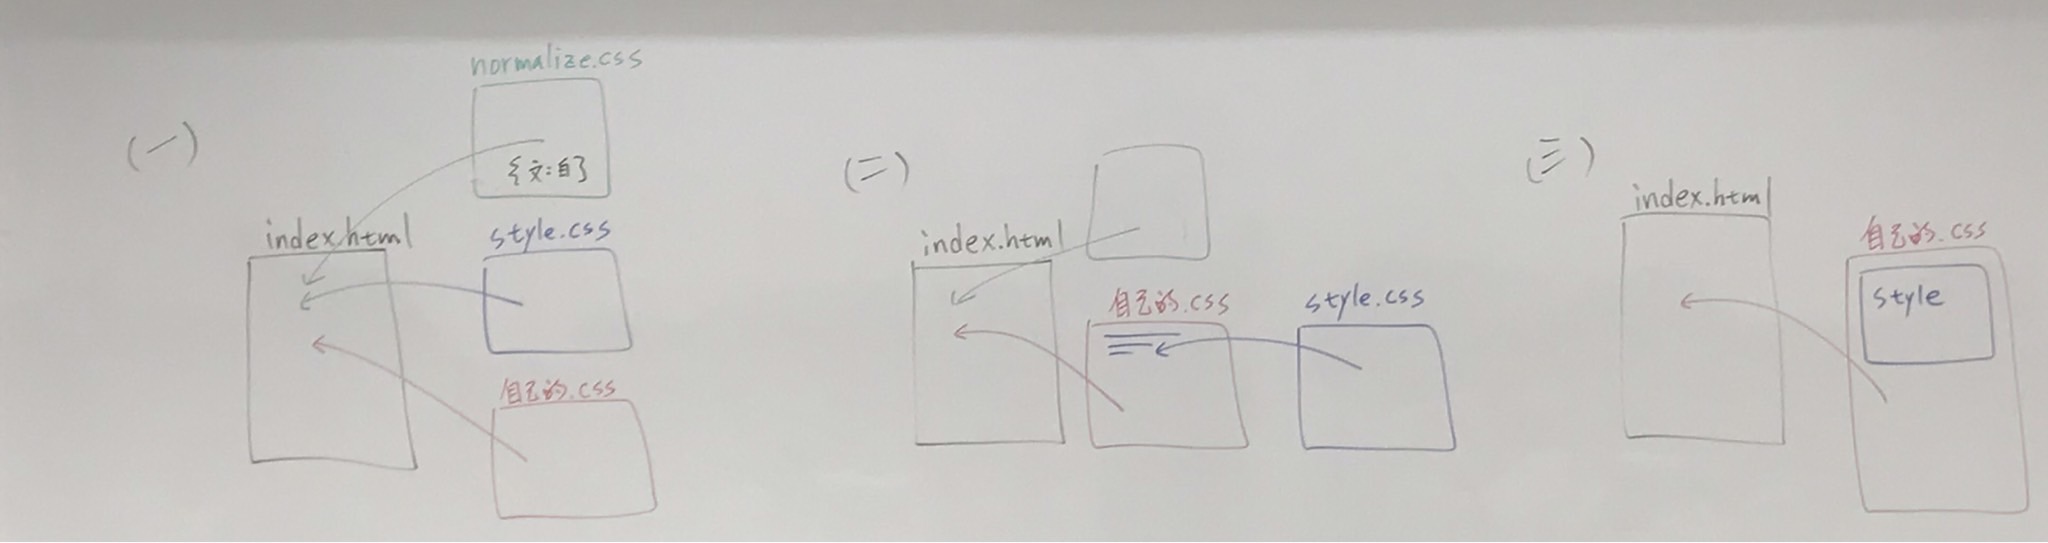 (一)
normalize.css
{文:自}
index.html
style.css
自己的.css
(二)
index.html
自己的.css
style.css
(三)
index.html
自己的.css
style